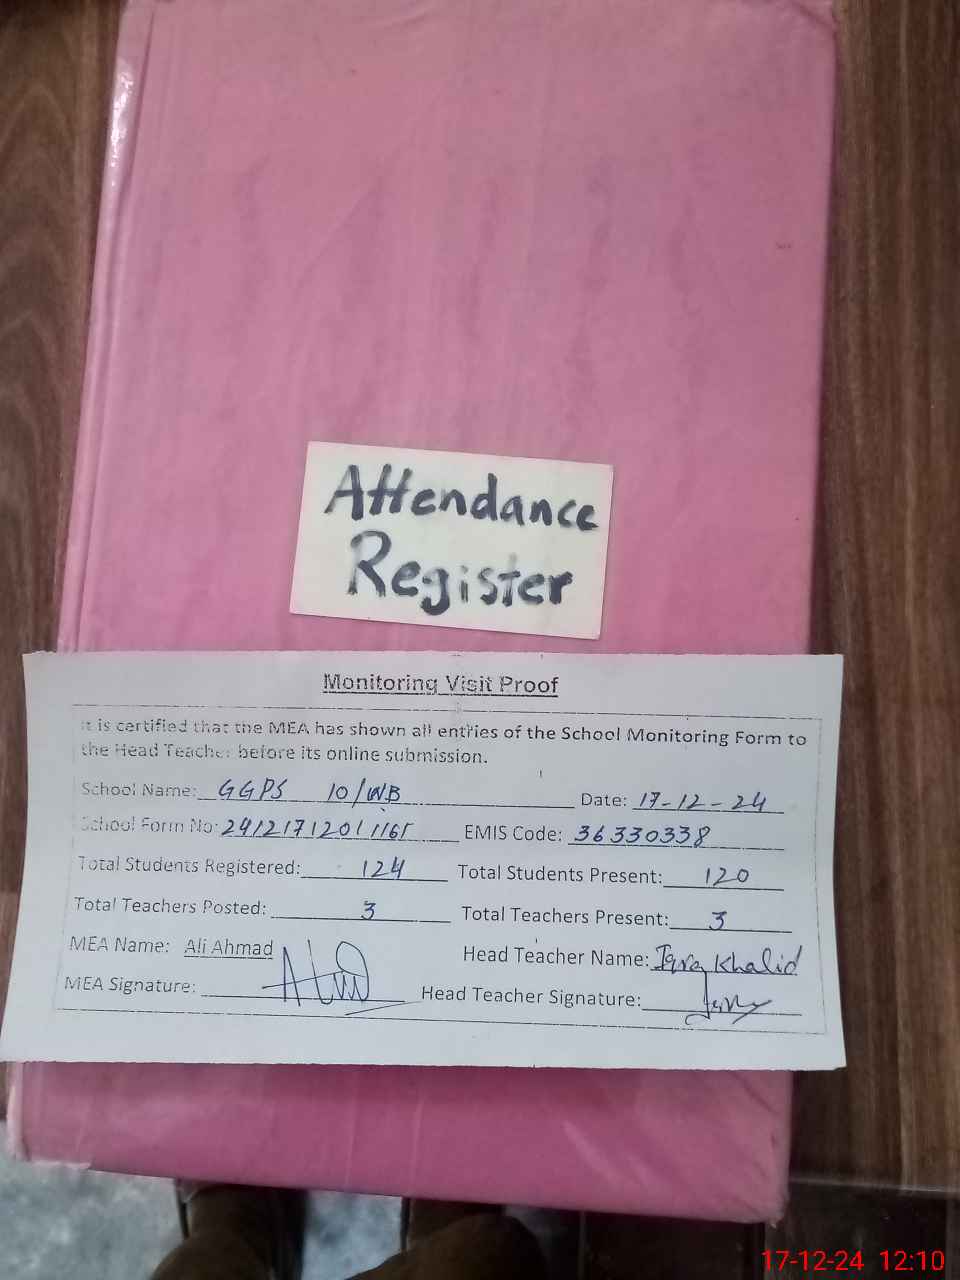 Attendance
Register
Monitoring Visit Proof
It is certified that the MEA has shown all entries of the School Monitoring Form to
the Head Teacher before its online submission.
School Name: GGPS 10/WB Date: 17-12-24
School Form No: EMIS Code: 36330338
Total Students Registered: 124 Total Students Present: 120
Total Teachers Posted: 3 Total Teachers Present: 3
MEA Name: Ali Ahmad Head Teacher Name: Iqra Khalid
MEA Signature: Head Teacher Signature:
17-12-24 12:10